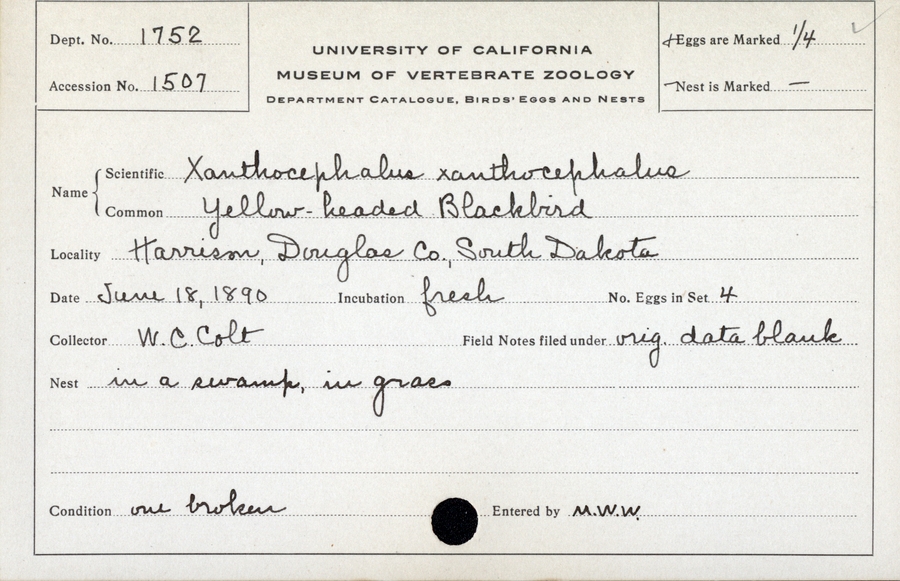 Dept. No. 1752
Accession No. 1507
UNIVERSITY OF CALIFORNIA
MUSEUM OF VERTEBRATE ZOOLOGY
DEPARTMENT CATALOGUE, BIRDS' EGGS AND NESTS
Eggs are Marked 1/4
Nest is Marked —
Name
Scientific Xanthocephalus xanthocephalus
Common Yellow-headed Blackbird
Locality Harrison, Douglas Co., South Dakota
Date June 18, 1890 Incubation fresh No. Eggs in Set 4
Collector W.C. Colt Field Notes filed under orig. data blank
Nest in a swamp, in grass
Condition one broken Entered by M.W.W.